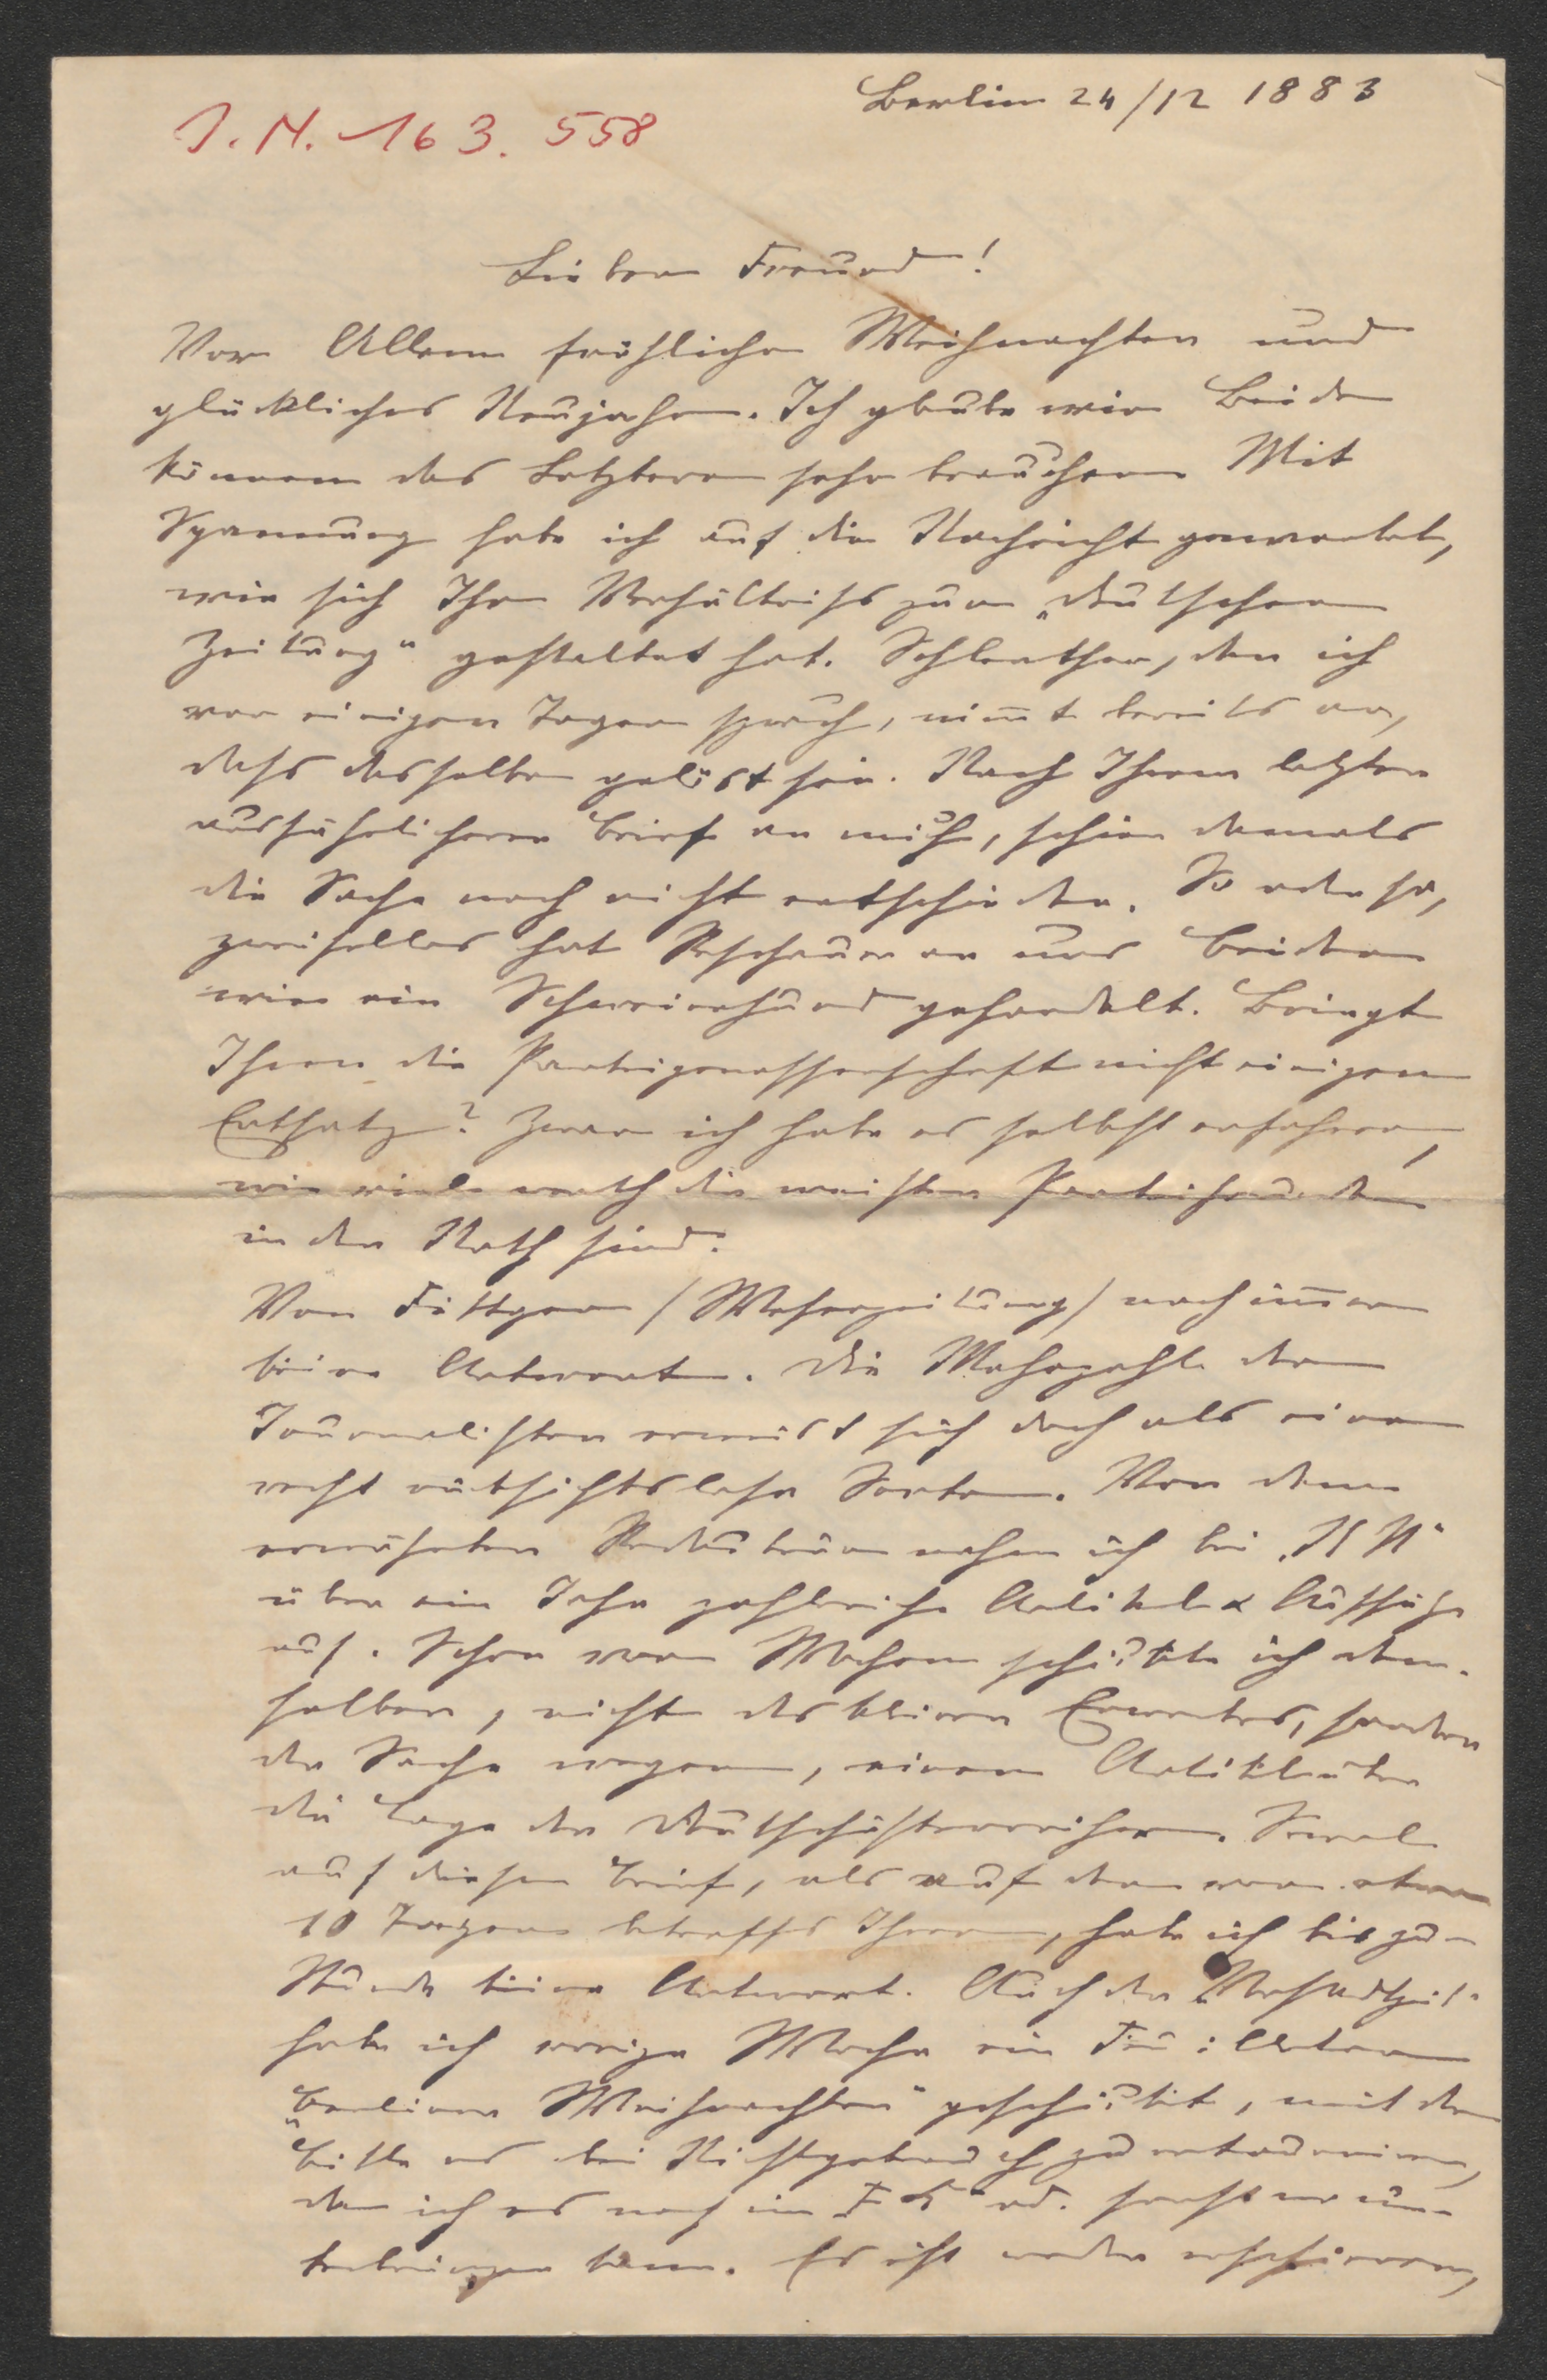 Berlin 24/12 1883
I. N. 163. 558
Lieber Freund!
Vor Allem fröhliche Weihnachten und
glückliches Neujahr. Ich glaube wir Beide
können das Letztere sehr brauchen. Mit
Spannung habe ich auf die Nachricht gewartet,
wie sich Ihr Verhältniss zur „Deutschen
Zeitung" gestaltet hat. Schlenther, den ich
vor einigen Tagen sprach, nim̄t bereits an,
dass dasselbe gelöst sei. Nach Ihrem letzten
ausführlichern Brief an mich, schien damals
die Sache noch nicht entschieden. So oder so,
zweifellos hat Reschauer an uns Beiden
wie ein Schweinehund gehandelt. Bringt
Ihnen die Parteigenossenschaft nicht einigen
Entsatz? Zwar ich habe es selbst erfahren,
wie viele werth die meisten Parteifreunde
in der Noth sind.
Von Fittger /Weserzeitung/ noch im̄er
keine Antwort. Die Mehrzahl der
Journalisten erweist sich doch als eine
recht rücksichtslose Sorte. Von dem
erwähnten Redakteur nahm ich bei „N N"
über ein Jahr zahlreiche Artikel & Aufsätze
auf. Schon vor Wochen schickte ich dem-
selben, nicht des kleinen Erwerbes, sondern
der Sache wegen, einen Artikel über
die Lage der Deutschösterreicher. Sowol
auf diesen Brief, als auf den vor etwa
10 Tagen betreffs Ihrer, habe ich bis zur
Stunde keine Antwort. Auch der
habe ich vorige Woche ein Feuilleton
„Berliner Weihnachten" geschickt, mit der
Bitte es bei Nichtgebrauch zu retourniren,
da ich es noch im od. sonst wo un-
terbringen kann. Es ist weder erschienen,